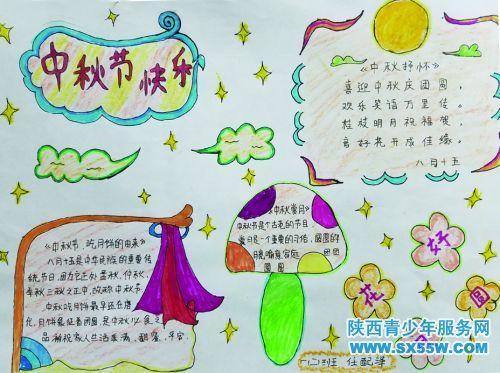 中秋节快乐
《中秋抒怀》
喜迎中秋庆团圆，
欢乐笑语万里传。
桂枝明月祝福贺，
良好花开成佳缘。
八月十五
《中秋节，吃月饼的由来》
八月十五是中华民族的重要传
统节日，因为它正处孟秋、仲秋、
季秋三秋之正中，故称中秋节。
中秋吃月饼最早还在唐
代。月饼象征着团圆，是中秋必食之
品，祝福家人生活美满、甜蜜、平安。
《中秋赏月》
中秋节是个古老的节日，
赏月是一个重要的习俗，圆圆的
团圆
好
花
月
圆
一(2)班 任配泽
陕西青少年服务网
www.sx55w.com